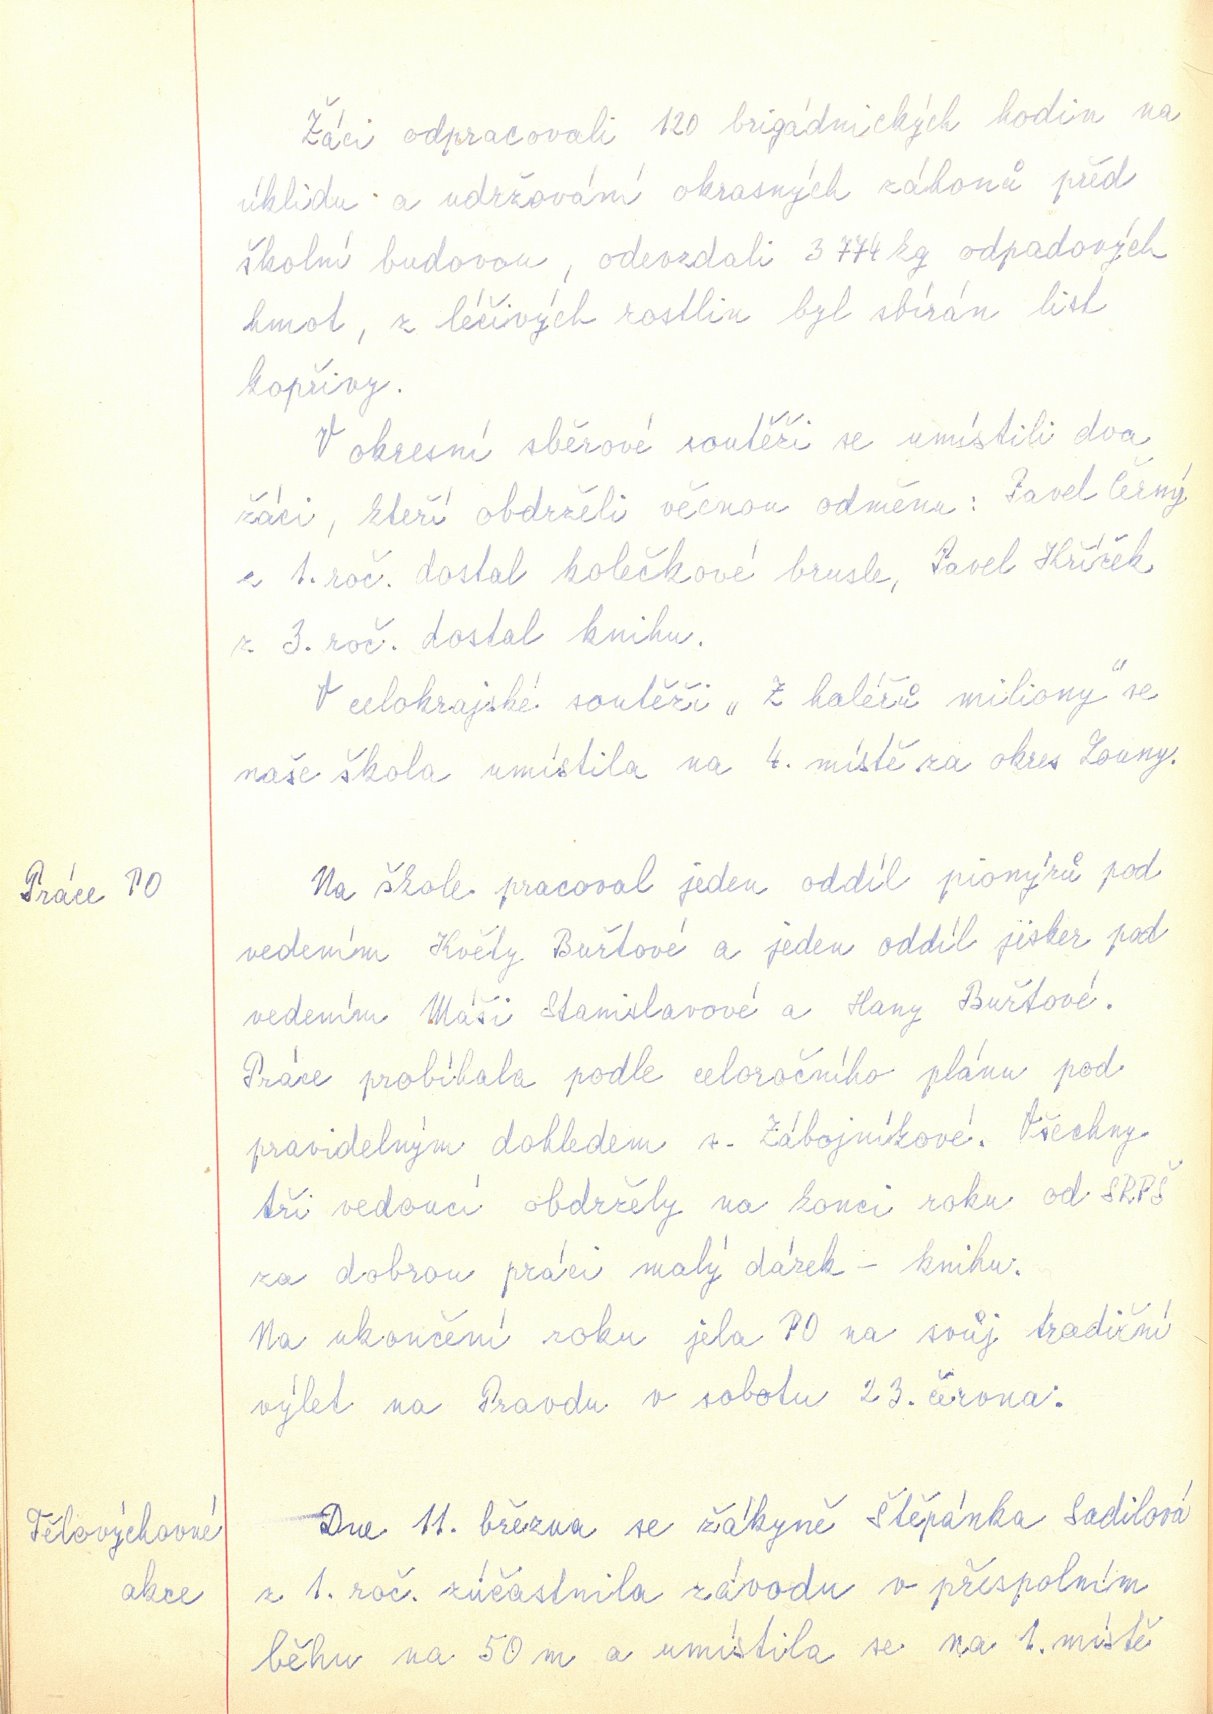 Žáci odpracovali 120 brigádnických hodin na
úklidu a udržování okrasných záhonů před
školní budovou, odevzdali 3 774 kg odpadových
hmot, z léčivých rostlin byl sbírán list
kopřivy.
V okresní sběrové soutěži se umístili dva
žáci, kteří obdrželi věcnou odměnu: Pavel Černý
z 1. roč. dostal kolečkové brusle, Pavel Křížek
z 3. roč. dostal knihu.
V celokrajské soutěži „Z haléřů miliony" se
naše škola umístila na 4. místě za okres Louny.
Práce PO
Na škole pracoval jeden oddíl pionýrů pod
vedením Květy Buřtové a jeden oddíl jisker pod
vedením Máši Stanislavové a Hany Buřtové.
Práce probíhala podle celoročního plánu pod
pravidelným dohledem s. Zábojníkové. Všechny
tři vedoucí obdržely na konci roku od SRPŠ
za dobrou práci malý dárek - knihu.
Na ukončení roku jela PO na svůj tradiční
výlet na Pravdu v sobotu 23. června.
Tělovýchovné
akce
Dne 11. března se žákyně Štěpánka Sadilová
z 1. roč. zúčastnila závodu v přespolním
běhu na 50 m a umístila se na 1. místě